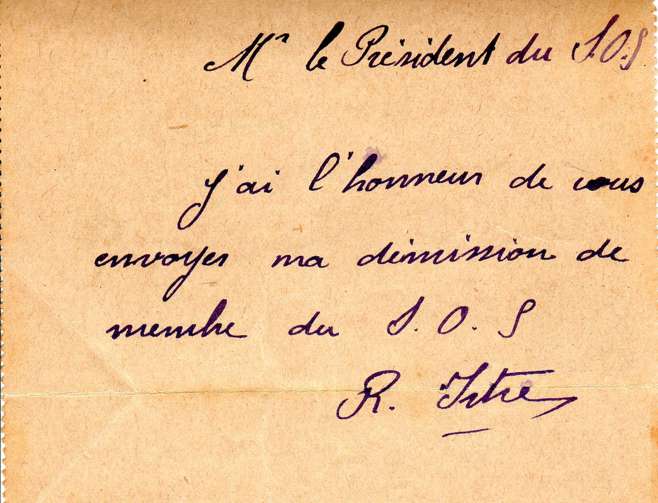 Mr le Président du S.O.S
J'ai l'honneur de vous
envoyer ma démission de
membre du S.O.S
R. Istre